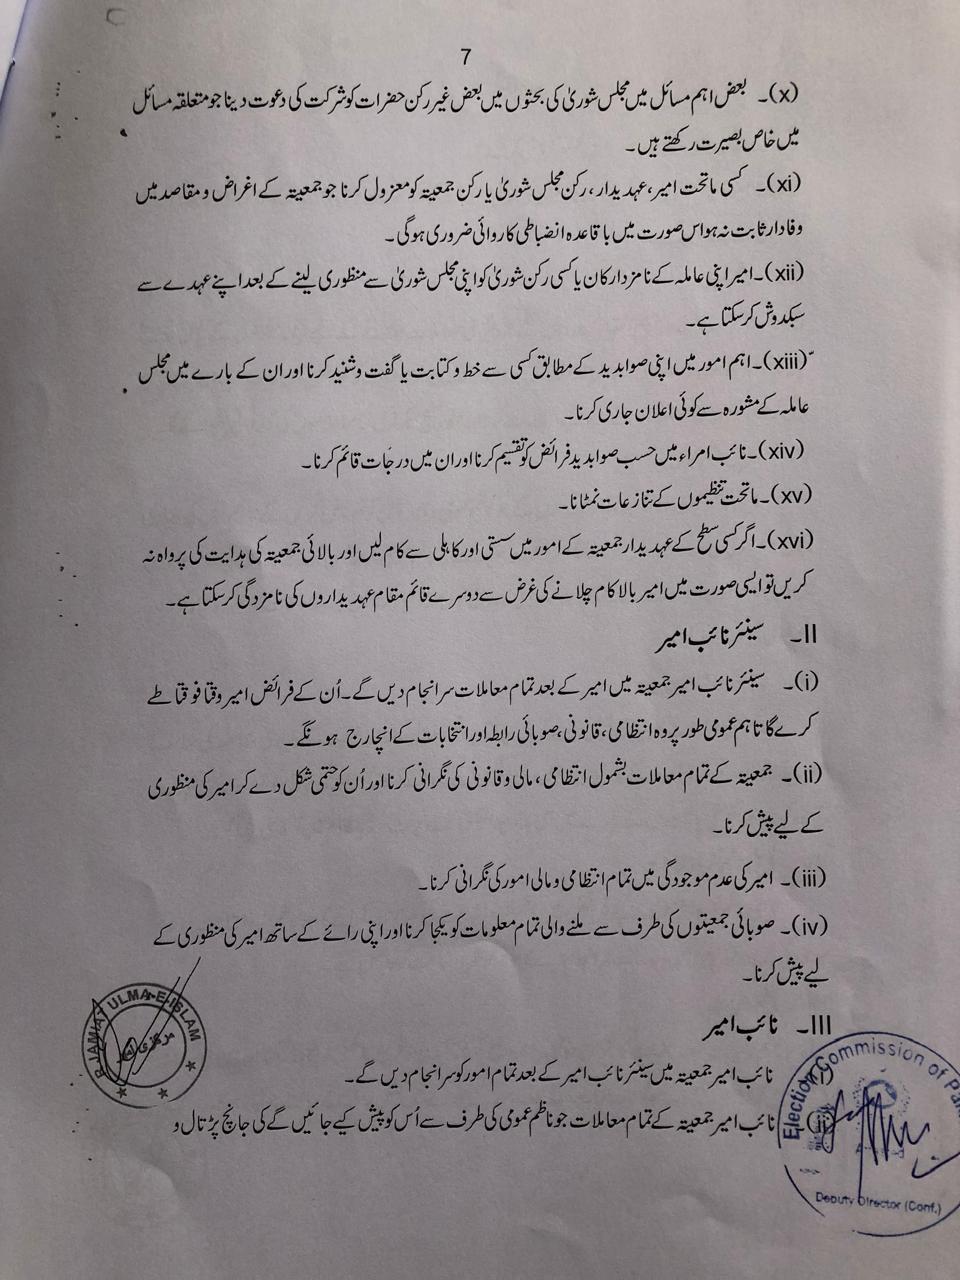 7
(x)۔ بعض اہم مسائل میں مجلس شوریٰ کی بحثوں میں بعض غیر رکن حضرات کو شرکت کی دعوت دینا جو متعلقہ مسائل
میں خاص بصیرت رکھتے ہیں۔
(xi)۔ کسی ماتحت امیر، عہدیدار، رکن مجلس شوریٰ یا رکن جمعیتہ کو معزول کرنا جو جمعیتہ کے اغراض و مقاصد میں
وفادار ثابت نہ ہو اس صورت میں باقاعدہ انضباطی کاروائی ضروری ہوگی۔
(xii)۔ امیر اپنی عاملہ کے نامزد ارکان یا کسی رکن شوریٰ کو اپنی مجلس شوریٰ سے منظوری لینے کے بعد اپنے عہدے سے
سبکدوش کرسکتا ہے۔
(xiii)۔ اہم امور میں اپنی صوابدید کے مطابق کسی سے خط و کتابت یا گفت و شنید کرنا اور ان کے بارے میں مجلس
عاملہ کے مشورہ سے کوئی اعلان جاری کرنا۔
(xiv)۔ نائب امراء میں حسب صوابدید فرائض کو تقسیم کرنا اور ان میں درجات قائم کرنا۔
(xv)۔ ماتحت تنظیموں کے تنازعات نمٹانا۔
(xvi)۔ اگر کسی سطح کے عہدیدار جمعیتہ کے امور میں سستی اور کاہلی سے کام لیں اور بالائی جمعیتہ کی ہدایت کی پرواہ نہ
کریں تو ایسی صورت میں امیر بالا کام چلانے کی غرض سے دوسرے قائم مقام عہدیداروں کی نامزدگی کرسکتا ہے۔
II۔ سینئر نائب امیر
(i)۔ سینئر نائب امیر جمعیتہ میں امیر کے بعد تمام معاملات سرانجام دیں گے۔ اُن کے فرائض امیر وقتاً فوقتاً طے
کرے گا تاہم عمومی طور پر وہ انتظامی، قانونی، صوبائی رابطہ اور انتخابات کے انچارج ہونگے۔
(ii)۔ جمعیتہ کے تمام معاملات بشمول انتظامی، مالی و قانونی کی نگرانی کرنا اور اُن کو حتمی شکل دے کر امیر کی منظوری
کے لیے پیش کرنا۔
(iii)۔ امیر کی عدم موجودگی میں تمام انتظامی و مالی امور کی نگرانی کرنا۔
(iv)۔ صوبائی جمعیتوں کی طرف سے ملنے والی تمام معلومات کو یکجا کرنا اور اپنی رائے کے ساتھ امیر کی منظوری کے
لیے پیش کرنا۔
III۔ نائب امیر
(i) نائب امیر جمعیتہ میں سینئر نائب امیر کے بعد تمام امور کو سرانجام دیں گے۔
(ii) نائب امیر جمعیتہ کے تمام معاملات جو ناظم عمومی کی طرف سے اُس کو پیش کیے جائیں گے کی جانچ پڑتال و
JAMIAT ULMA-E-ISLAM
مرکزی
Election Commission of
Deputy Director (Conf.)